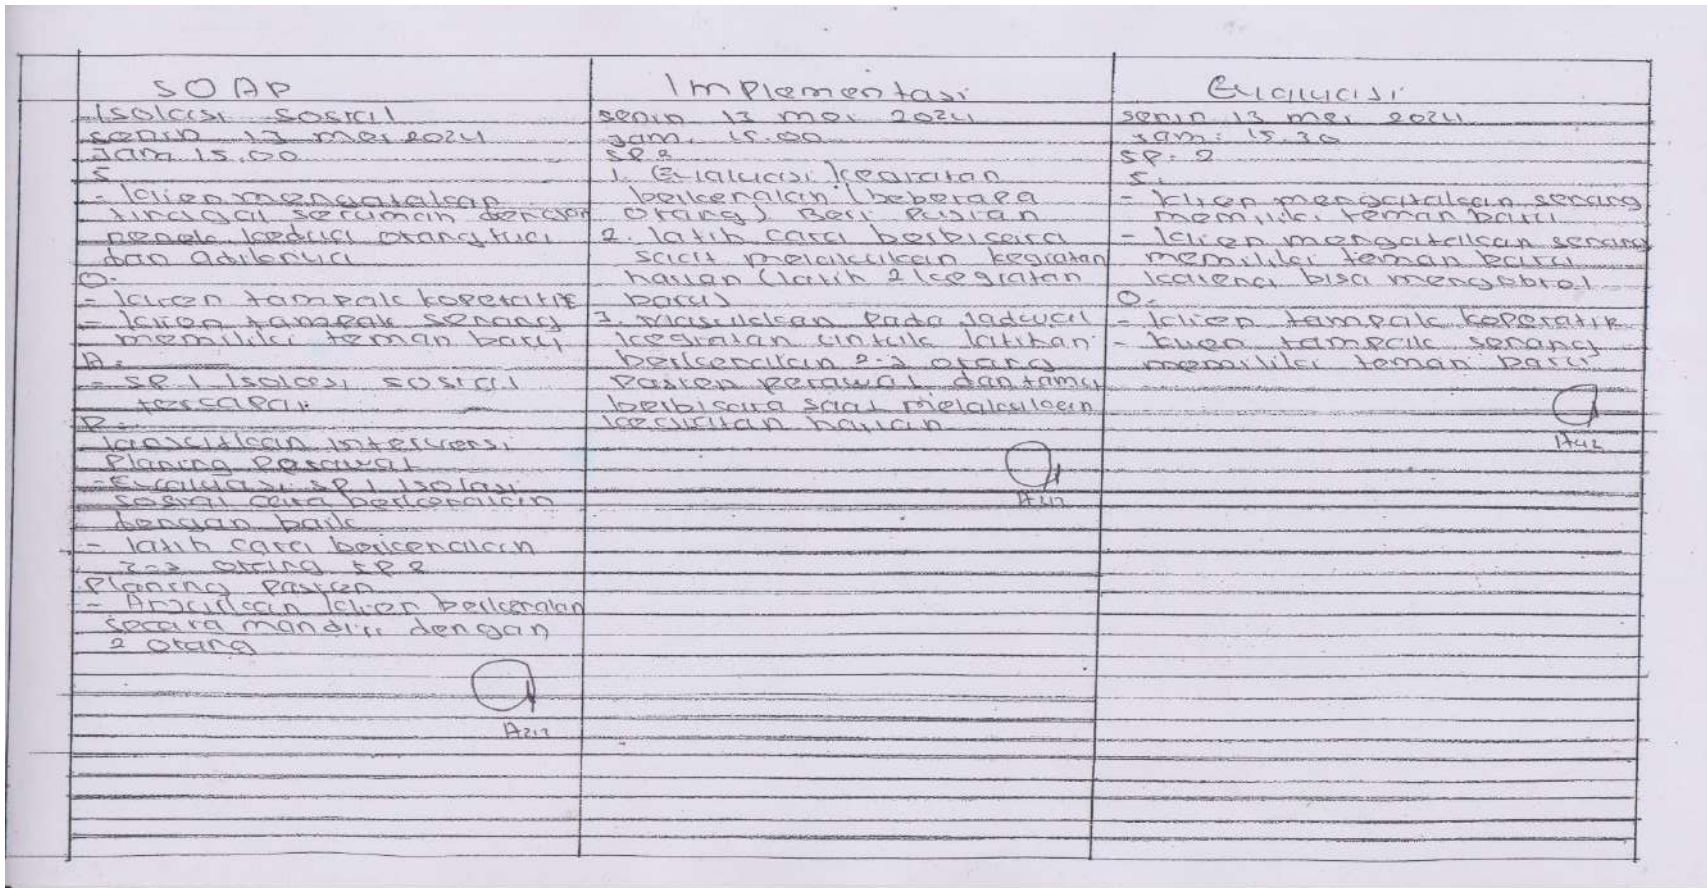 SOAP
Isolasi sosial
senin 13 mei 2024
Jam 15.00
S
- klien mengatakan
tinggal serumah dengan
nenek kedua orang tua
dan adiknya
O:
- klien tampak koperatif
- klien tampak senang
memiliki teman baru
A:
- SP 1 Isolasi sosial
tercapai
P:
lanjutkan intervensi
Planing Perawat
- Evaluasi SP 1 Isolasi
sosial cara berkenalan
dengan baik
- latih cara berkenalan
2-3 orang SP 2
Planing Pasien
- Anjurkan klien berkenalan
secara mandiri dengan
2 orang
Implementasi
senin 13 mei 2024
Jam. 15.00
SP 2
1. Evaluasi kegiatan
berkenalan (beberapa
orang) Beri Pujian
2. latih cara berbicara
saat melakukan kegiatan
harian (latih 2 kegiatan
baru)
3. Masukkan Pada Jadwal
kegiatan untuk latihan
berkenalan 2-3 orang
Pasien perawat dan tamu
berbicara saat melakukan
kegiatan harian
Evaluasi
senin 13 mei 2024
Jam: 15.30
SP: 2
S:
- klien mengatakan senang
memiliki teman baru
- klien mengatakan senang
memiliki teman baru
karena bisa mengobrol
O:
- klien tampak koperatif
- klien tampak senang
memiliki teman baru